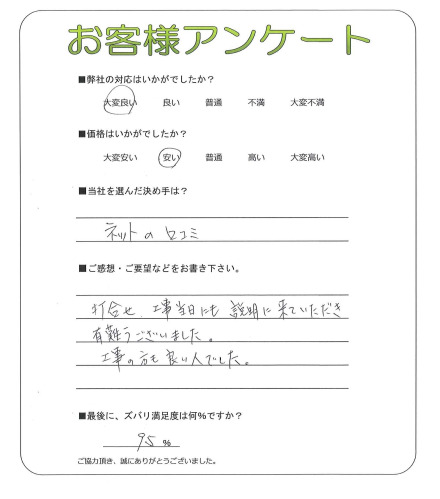 お客様アンケート
■弊社の対応はいかがでしたか？
大変良い 良い 普通 不満 大変不満
■価格はいかがでしたか？
大変安い 安い 普通 高い 大変高い
■当社を選んだ決め手は？
ネットの口コミ
■ご感想・ご要望などをお書き下さい。
打合せ、工事当日にも説明に来ていただき
有難うございました。
工事の方も良い人でした。
■最後に、ズバリ満足度は何％ですか？
95 ％
ご協力頂き、誠にありがとうございました。